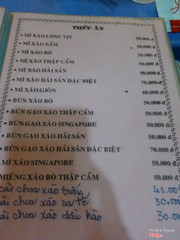 THỨC ĂN
- MÌ XÀO LÒNG VỊT 50.000 đ
- MÌ XÀO NẤM 50.000 đ
- MÌ XÀO BÒ 50.000 đ
- MÌ XÀO THẬP CẨM 50.000 đ
- MÌ XÀO HẢI SẢN 50.000 đ
- MÌ XÀO HẢI SẢN ĐẶC BIỆT 70.000 đ
- MÌ XÀO GIÒN 60.000 đ
- BÚN XÀO BÒ 50.000 đ
- BÚN GẠO XÀO THẬP CẨM 50.000 đ
- BÚN GẠO XÀO SINGAPORE 50.000 đ
- BÚN GẠO XÀO HẢI SẢN 50.000 đ
- BÚN GẠO XÀO HẢI SẢN ĐẶC BIỆT 70.000 đ
MÌ XÀO SINGAPORE 50.000 đ
MIẾNG XÀO BÒ THẬP CẨM 50.000 đ
cải chua xào trứng 40.000
cải chua xào 30.000
cải chua xào dầu hào 30.000